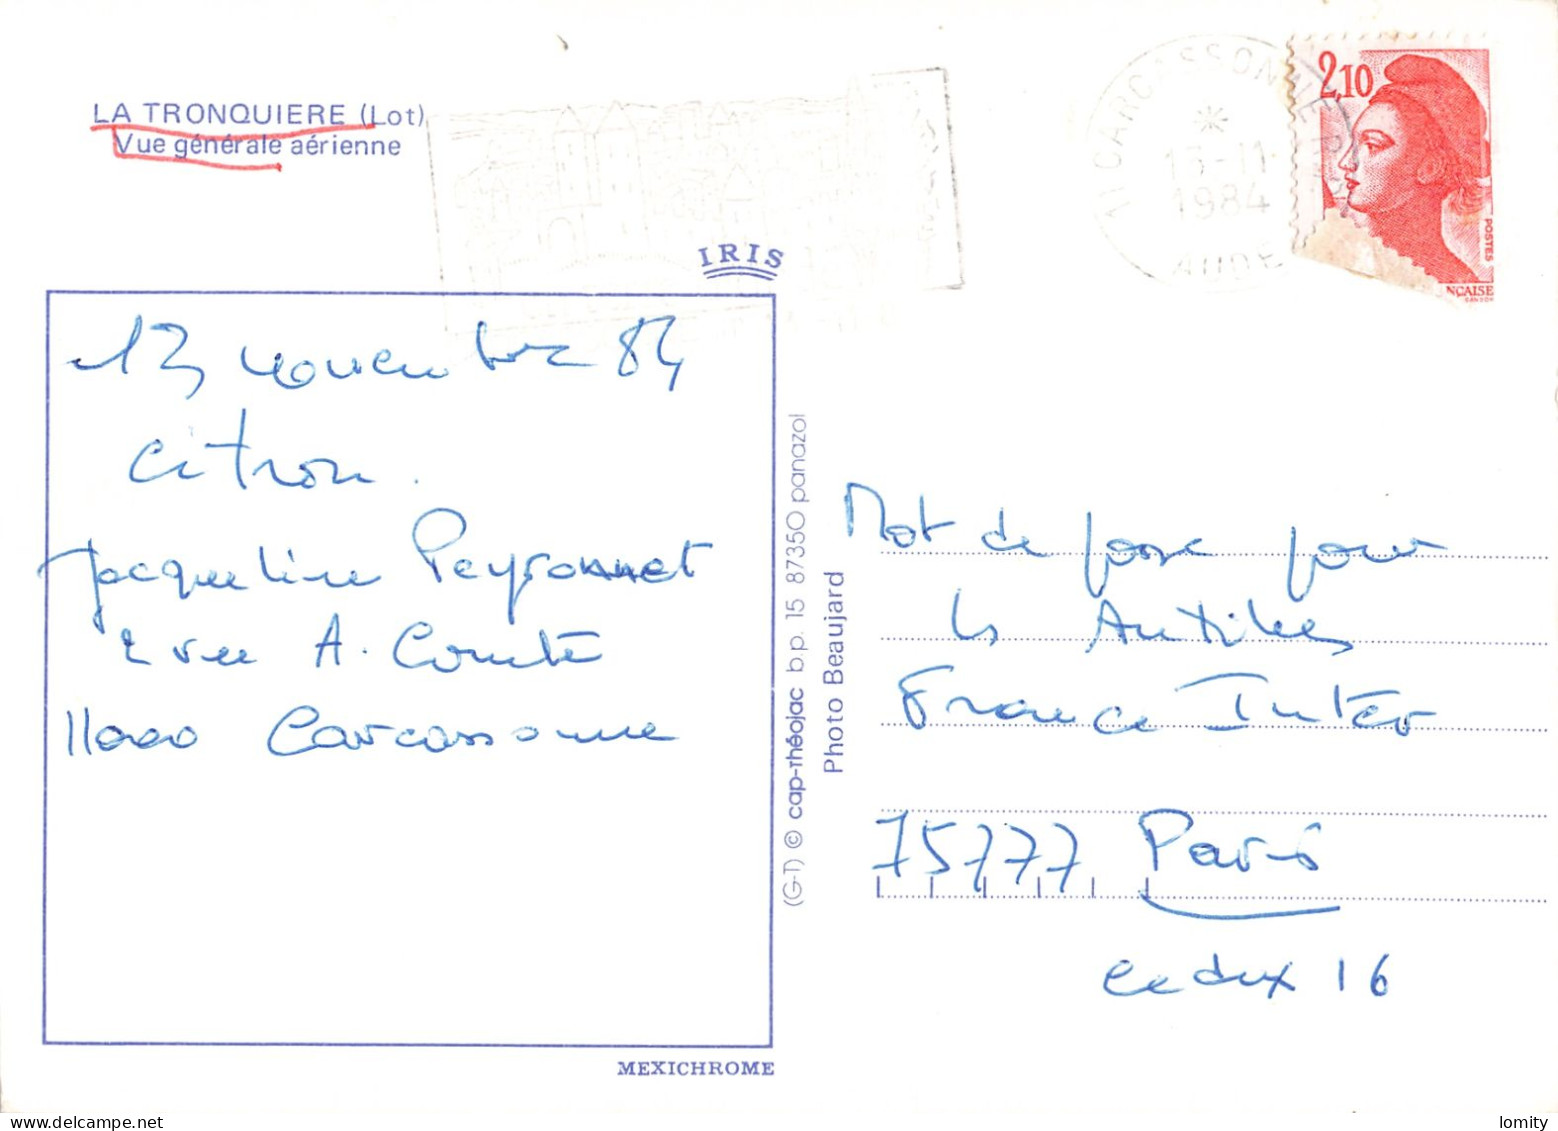 LA TRONQUIERE (Lot)
Vue générale aérienne
IRIS
A1 CARCASSONNE
13-11
1984
AUDE
2,10
POSTES
NÇAISE
GANDON
13 novembre 84
Citron.
Jacqueline Peyronnet
2 rue A. Comte
11000 Carcassonne
MEXICHROME
(G-T) © cap-théojac b.p. 15 87350 panazol
Photo Beaujard
Mot de passe pour
les Antilles
France Inter
75777 Paris
cedex 16
delcampe.net
lomity